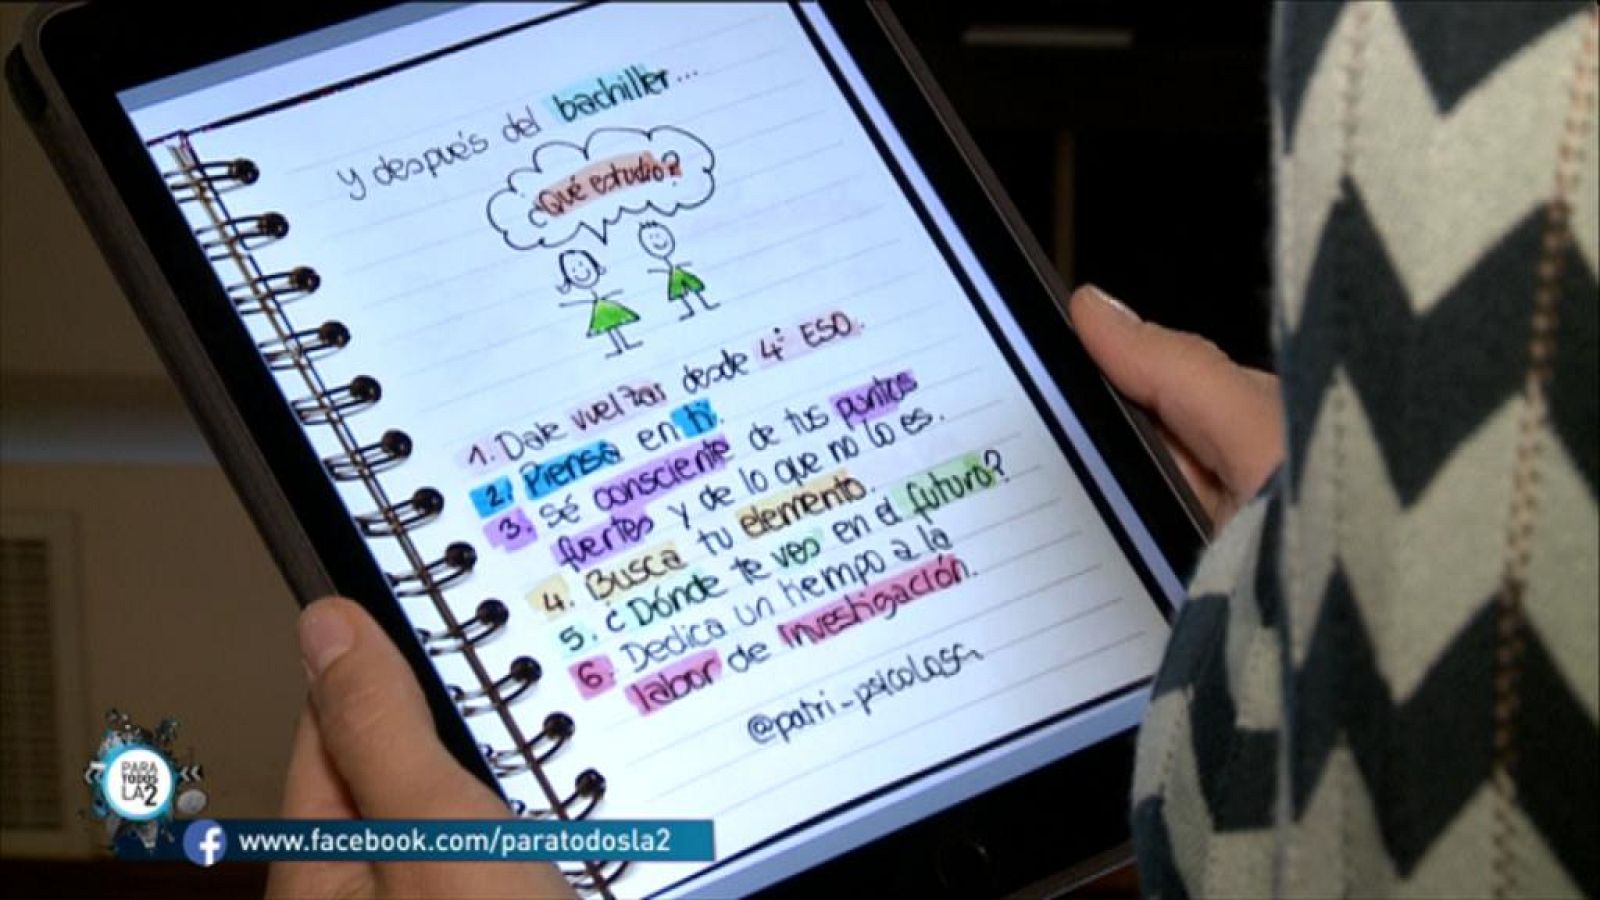 y después del bachiller...
¿Qué estudio?
1. Dale vueltas desde 4º ESO.
2. Piensa en ti.
3. Sé consciente de tus puntos
fuertes y de lo que no lo es.
4. Busca tu elemento.
5. ¿Dónde te ves en el futuro?
6. Dedica un tiempo a la
labor de investigación.
@patri_psicologa
PARA
TODOS
LA2
f www.facebook.com/paratodosla2